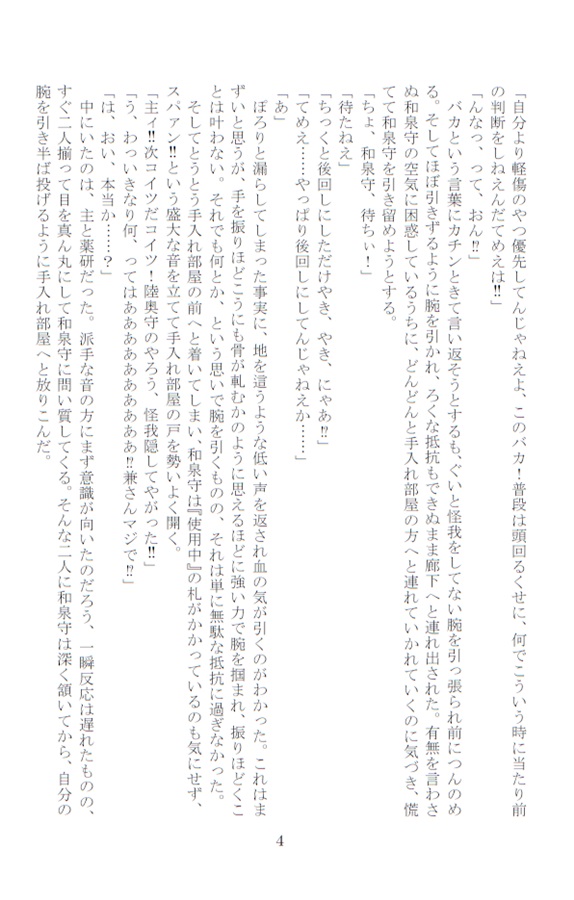 「自分より軽傷のやつ優先してんじゃねえよ、このバカ！普段は頭回るくせに、何でこういう時に当たり前
の判断をしねえんだてめえは‼」
「んなっ、って、おん⁉」
　バカという言葉にカチンときて言い返そうとするも、ぐいと怪我をしてない腕を引っ張られ前につんのめ
る。そしてほぼ引きずるように腕を引かれ、ろくな抵抗もできぬまま廊下へと連れ出された。有無を言わさ
ぬ和泉守の空気に困惑しているうちに、どんどんと手入れ部屋の方へと連れていかれていくのに気づき、慌
てて和泉守を引き留めようとする。
「ちょ、和泉守、待ちぃ！」
「待たねえ」
「ちっくと後回しにしただけやき、やき、にゃあ⁉」
「てめえ……やっぱり後回しにしてんじゃねえか……」
「あ」
　ぽろりと漏らしてしまった事実に、地を這うような低い声を返され血の気が引くのがわかった。これはま
ずいと思うが、手を振りほどこうにも骨が軋むかのように思えるほどに強い力で腕を掴まれ、振りほどくこ
とは叶わない。それでも何とか、という思いで腕を引くものの、それは単に無駄な抵抗に過ぎなかった。
　そしてとうとう手入れ部屋の前へと着いてしまい、和泉守は『使用中』の札がかかっているのも気にせず、
スパァン‼という盛大な音を立てて手入れ部屋の戸を勢いよく開く。
「主ィ‼次コイツだコイツ！陸奥守のやろう、怪我隠してやがった‼」
「う、わっいきなり何、ってはあああああああああ⁉兼さんマジで⁉」
「は、おい、本当か……？」
　中にいたのは、主と薬研だった。派手な音の方にまず意識が向いたのだろう、一瞬反応は遅れたものの、
すぐ二人揃って目を真ん丸にして和泉守に問い質してくる。そんな二人に和泉守は深く頷いてから、自分の
腕を引き半ば投げるように手入れ部屋へと放りこんだ。
4